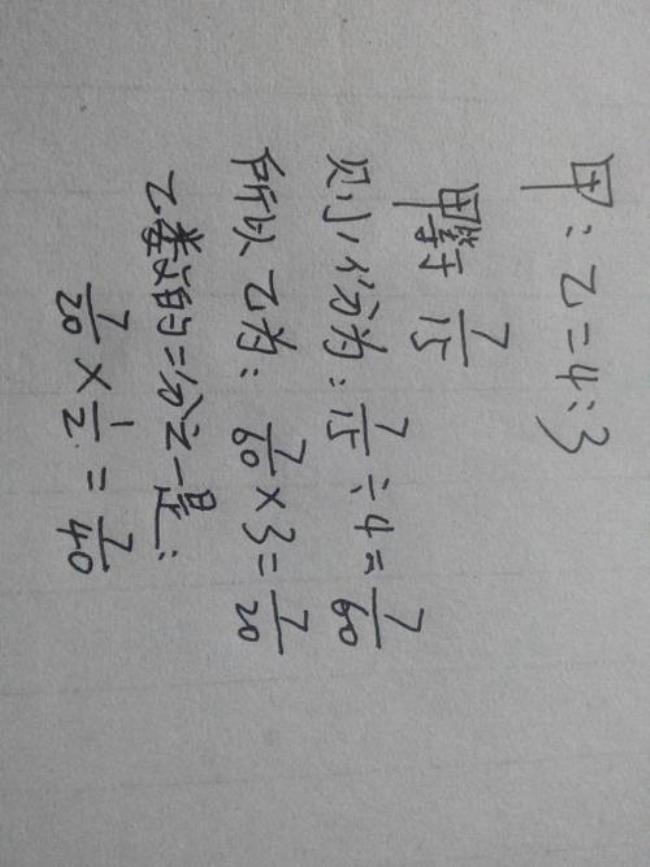 甲:乙=4:3
甲等于 7/15
则1份为:7/15÷4=7/60
所以乙为:7/60×3=7/20
乙数的二分之一是:
7/20×1/2=7/40